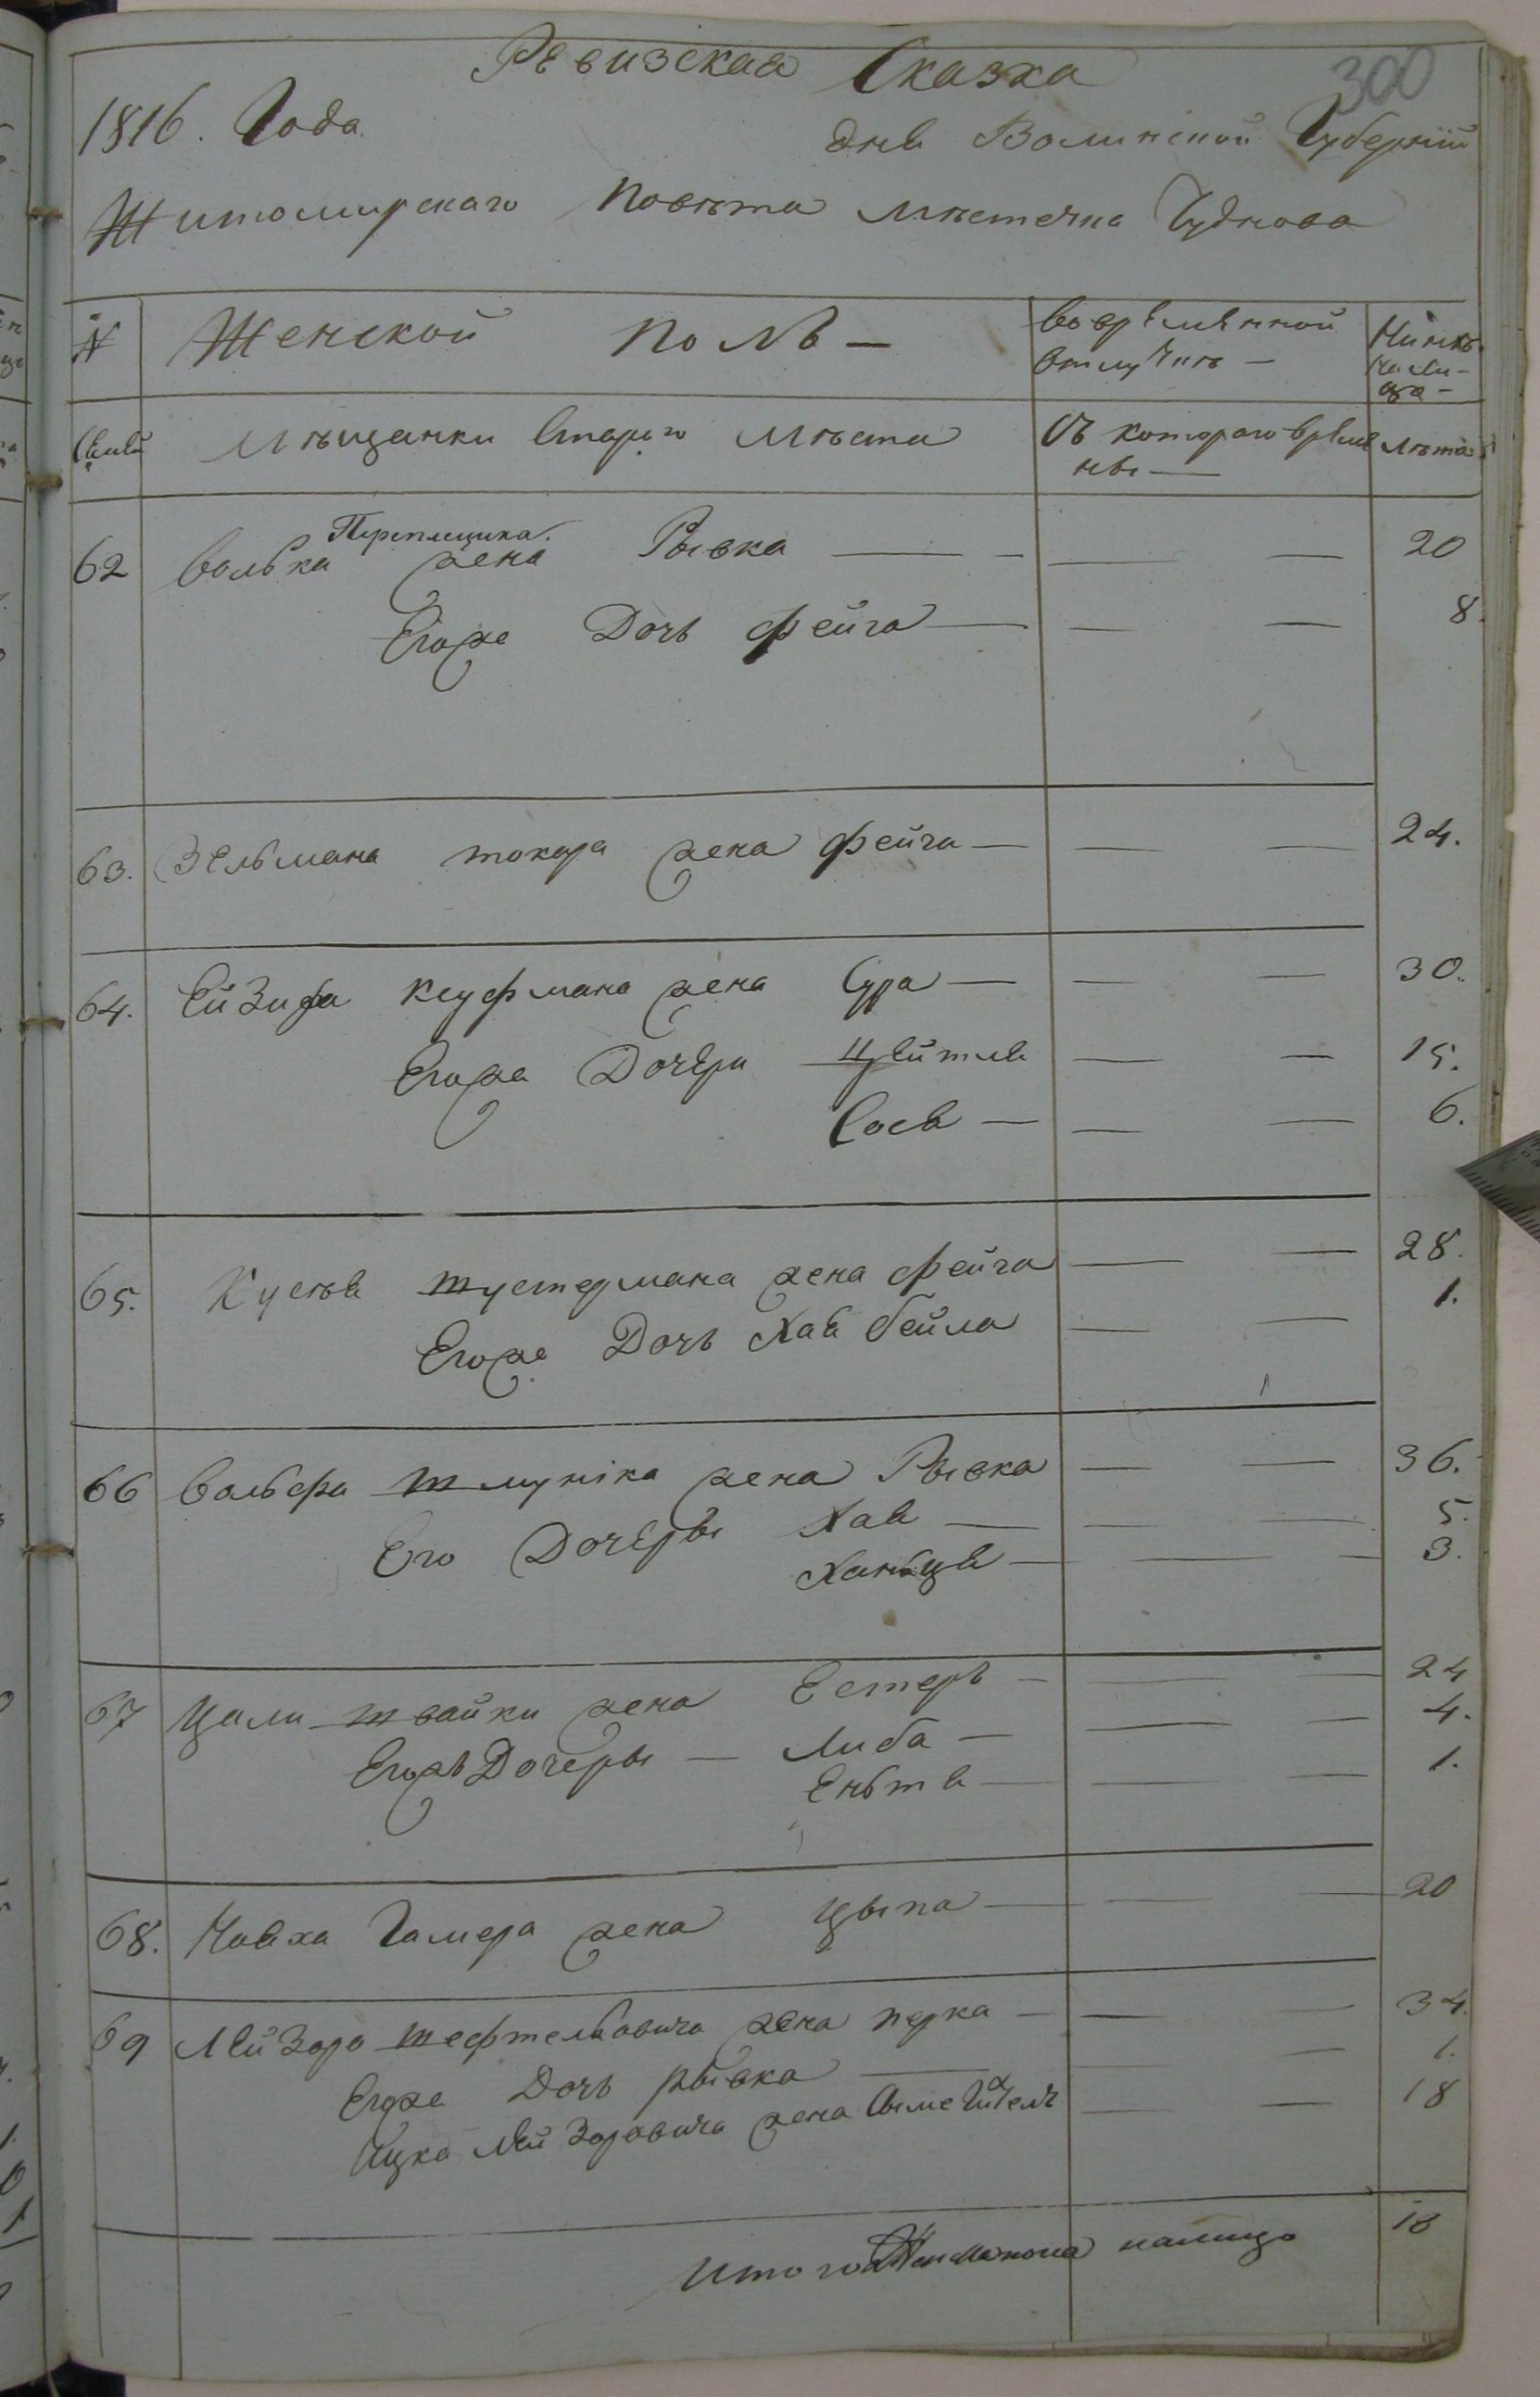 300
Ревизская Сказка
1816. Года дня Волинской Губернїй
Житомирскаго Повѣта мѣстечка Чуднова
№ Женской Полъ — Во временной отлучкѣ — Нынѣ на ли-
цо —
Семей Мѣщанки Старого Мѣста Съ котораго време Лѣта
ны —
Переплецика
62 Волька жена Рывка — — — 20
Егоже Дочь фейга — — — 8.
63. Зельмана токара жена фейга — — — 24.
64. Ейзика Кауфмана жена Сура — — — 30.
Егоже Дочери Цвейтля — — 15.
Сося — — — 6.
65. Куся Шустермана жена фейга — — 28.
Егоже Дочь Хая бейла — — 1.
66 Вольфа Шмуніка жена Рывка — — 36.
Его Дочеры Хая — — — 5.
Ханьця — — — 3.
67 Цали Швайки жена Естеръ — — — 24
Егожъ Дочеры — Либа — — — 4.
Еньтя — — — 1.
68. Новха Гамера жена Цыпа — — — 20
69 Лейзора Шефтельовича жена перка — — — 34.
Егоже Дочь рывка — — — 1.
Ицка Лейзоровича жена — — 18
Итого Женска пола налицо 18